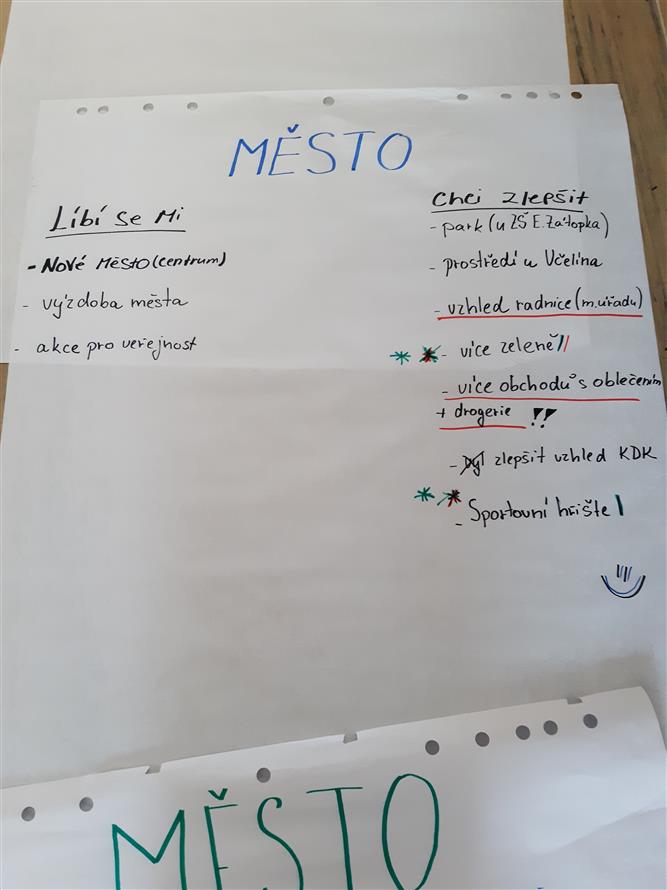 MĚSTO
Líbí se mi
- Nové Město (centrum)
- výzdoba města
- akce pro veřejnost
Chci zlepšit
- park (u ZŠ E. Zátopka)
- prostředí u Včelína
- vzhled radnice (m. úřadu)
- více zeleně
- více obchodů s oblečením
+ drogerie !!
- zlepšit vzhled KDK
- Sportovní hřiště
MĚSTO